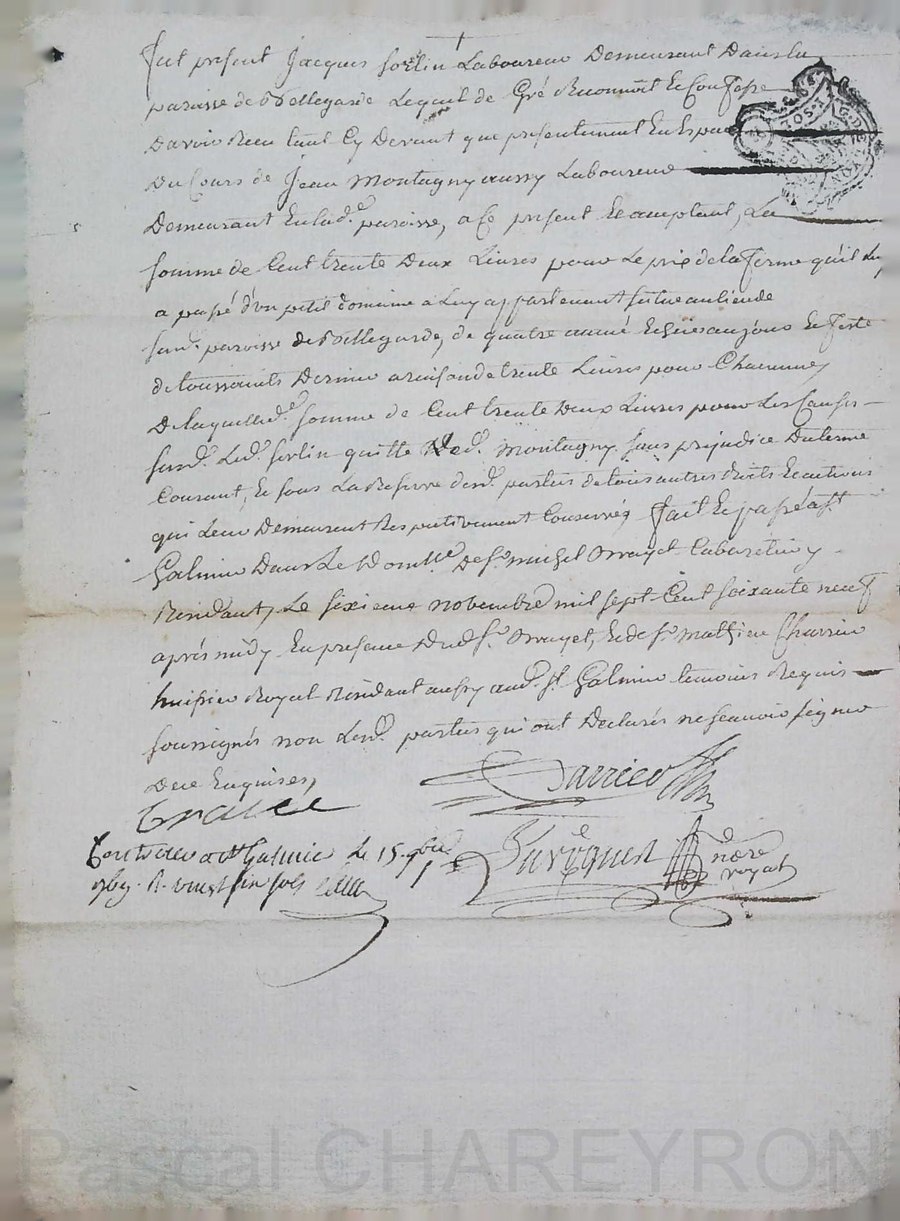 Fut present Jacques forlin Laboureur Demeurant Dans la
paroisse de Bellegarde Lequel de Gré Reconnoit Et Confesse
Davoir Receu tant Cy Devant que presentement En Espece
Du Cours de Jean Montagny aussy Laboureur
Demeurant En lad.e paroisse, a Ce present Et acceptant, La
somme de Cent trente Deux Livres pour Le prix de la ferme qu'il Luy
a passé d'un petit domaine a Luy appartenant situé au lieu de
paroisse de Bellegarde, de quatre année Echues au jour Et feste
de toussaints Dernier a raison de trente Livres pour Chacunne,
De laquelle d.e somme de Cent trente Deux Livres pour Les Causes
susd. Led. forlin quitte Led. Montagny sans prejudice Du terme
Courant, Et sous La Reserve desd. parties de tous autres droits Et actions
qui Leur Demeurent Respectivement Conservés, fait Et passé a St
Galmier Dans Le Domlle De Sr. michel Cabaretier y
Residant, Le sixieme novembre mil sept Cent soixante neuf
après midy En presence Dud. Sr. Et de Sr. Mathieu Charrier
huissier Royal Residant aussy aud. St. Galmier temoins Requis
soussignés non Lesd. parties qui ont Declarés ne scavoir signer
De ce Enquises,
Controllé a St Galmier Le 15 9bre
1769 R. vingt six sols
nore
royal
10 SOL
G. DE LYON
Pascal CHAREYRON